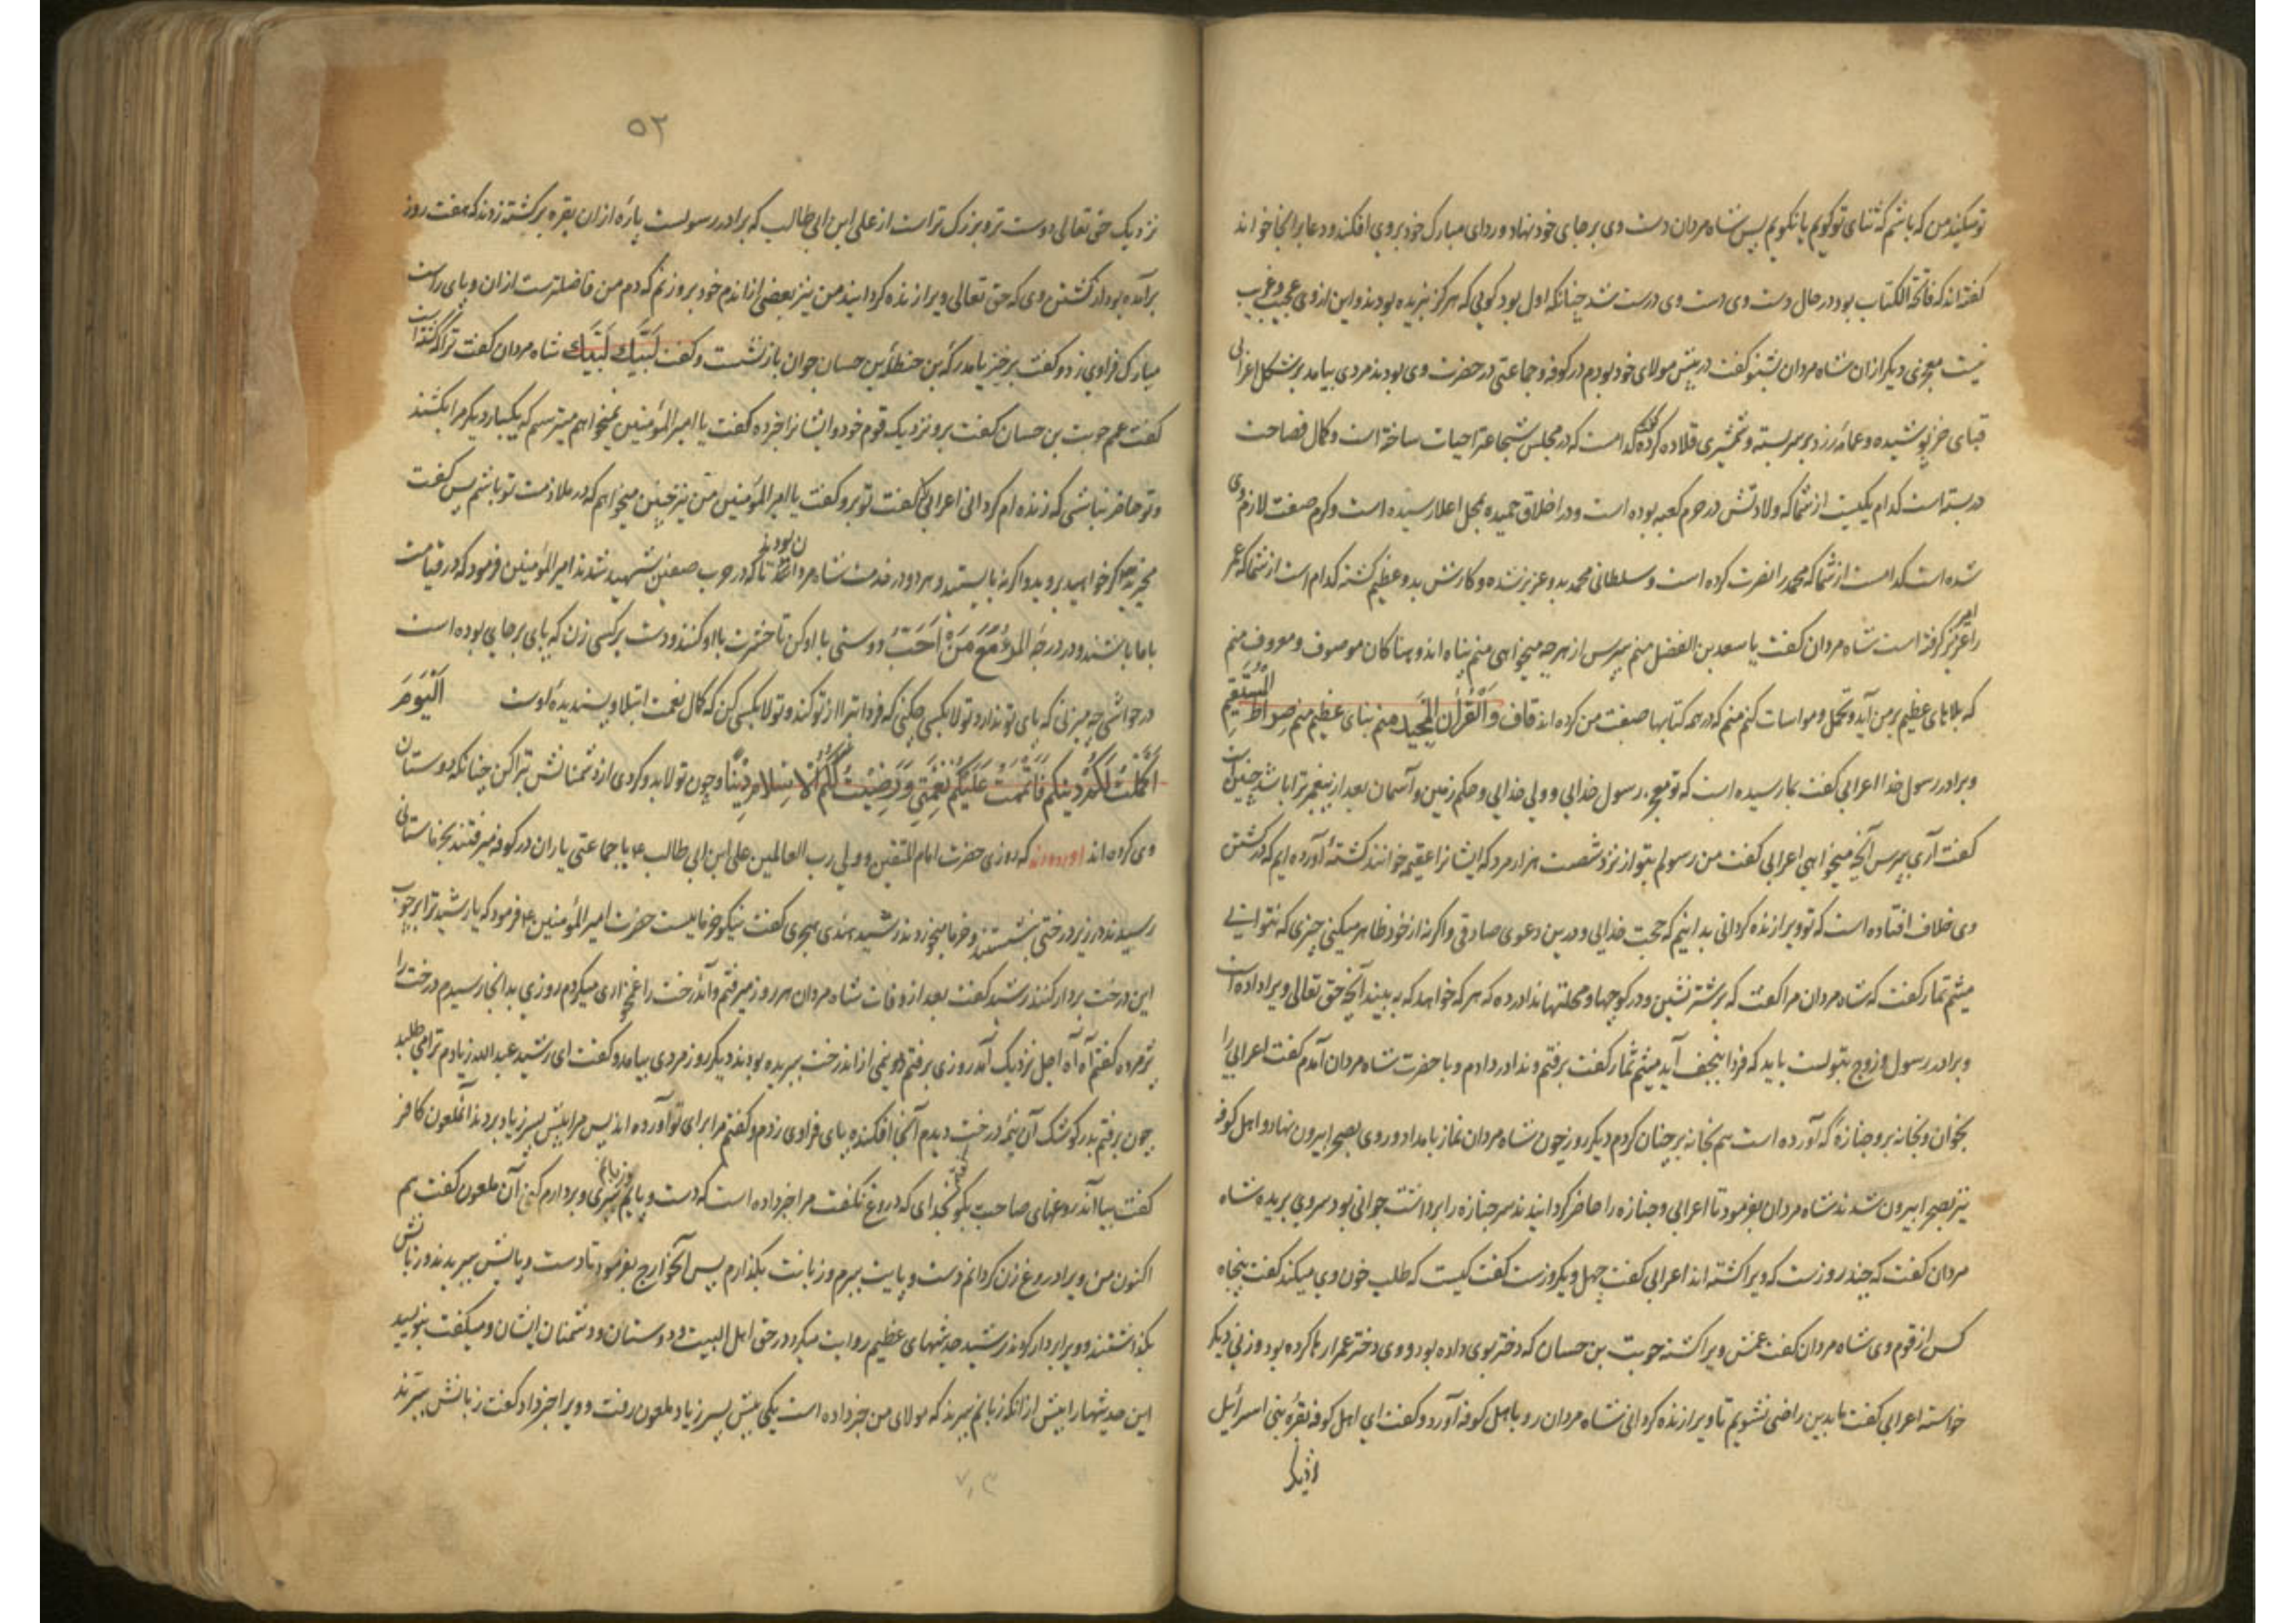 تو میکنند من که باشم که ثنای تو گویم یا نگویم پس شاه مردان دست وی بر جای خود نهاد و ردای مبارک خود بر وی افکند و دعا بر انجا خواند
گفته اند که فاتحة الکتاب بود در حال دست وی درست شد چنانکه اول بود گویی که هرگز نبریده بودند و این از وی عجیب و غریب
نیست معجزی دیگر از ان شاه مردان بشنو گفت در پیش مولای خود بودم در کوفه و جماعتی در حضرت وی بودند مردی بیامد بر شکل اعرابی
قبای خز پوشیده و عمامه زرد بر سر بسته و شمشیری قلاده کرده گفت کدامست که در مجلس شجاعت احیات ساخته است و کمال فصاحت
در بسته است کدام یکیست از شما که ولادتش در حرم کعبه بوده است و در اخلاق حمیده بمحل اعلا رسیده است و کرم صفت لازم وی
شده است کدامست از شما که محمد را نصرت کرده است و سلطانی محمد بدو عزیز شده و کارش بدو عظیم گشته کدام است از شما که عمر
را گرفته است شاه مردان گفت یا سعد بن الفضل منم بپرس از هرچه میخواهی منم پناه اندوهناکان موصوف و معروف منم
که بلاهای عظیم بر من آید و تحمل و مواسات کنم منم که در همه کتابها صفت من کرده اند قاف وَالْقُرْآنِ الْمَجِيدِ منم بنای عظیم منم صراط الْمُسْتَقِيمِ
و برادر رسول خدا اعرابی گفت بما رسیده است که تو رسول خدایی و ولی خدایی و حکم زمین و آسمان بعد از پیغمبر ترا باشد چنین است
گفت آری بپرس آنچه میخواهی اعرابی گفت من رسولم بتو از نزد شصت هزار مرد که ایشانرا عقیمه خوانند کشتهٔ آورده ایم که در کشتن
وی خلاف افتاده است که تو ویرا زنده گردانی بدانیم که حجت خدایی و درین دعوی صادقی و اگر نه از خود ظاهر میکنی چیزی که نتوانی
میثم تمار گفت که شاه مردان مرا گفت که بر شتر نشین و در کوچها و محلتها ندا در ده که هر که خواهد که به بیند آنچه حق تعالی ویرا داده است
و برادر رسول و زوج بتولست باید که فردا بنجف آید میثم تمار گفت برفتم و ندا در دادم و با حضرت شاه مردان آمدم گفت اعرابی را
بخوان و بخانه بر و جنازه که آورده است هم بخانه بر چنان کردم دیگر روز چون شاه مردان نماز بامداد و روی بصحرا بیرون نهاد و اهل کوفه
نیز بصحرا بیرون شدند شاه مردان بفرمود تا اعرابی و جنازه را حاضر گردانیدند سر جنازه را برداشت جوانی بود سروی بریده شاه
مردان گفت که چند روزست که ویرا کشته اند اعرابی گفت چهل و یکروزست گفت کیست که طلب خون وی میکند گفت پنجاه
کس از قوم وی شاه مردان گفت عمش ویرا کشته حویت بن حسان که دختر بوی داده بود و وی دختر عم را رها کرده بود و زنی دیگر
خواسته اعرابی گفت ما بدین راضی نشویم تا ویرا زنده گردانی شاه مردان رو با اهل کوفه آورد و گفت ای اهل کوفه بقرهٔ بنی اسرائیل
۵۲
نزدیک حق تعالی دوست تر و بزرگ تر است از علی ابن ابی طالب که برادر رسولست پارهٔ از ان بقره بر کشته زدند که هفت روز
برآمده بود از کشتن وی که حق تعالی ویرا زنده گردانید من نیز بعضی از اندام خود برو زنم که دم من فاضلترست از ان و پای راست
مبارک فراوی زد و گفت برخیز یا مدرکة بن حنظلة بن حسان جوان باز نشست و گفت لَبَّيْكَ لَبَّيْكَ شاه مردان گفت ترا که کشته است
گفت عم حویت بن حسان گفت برو نزدیک قوم خود و ایشانرا خبر ده گفت یا امیر المؤمنین نمیخواهم میترسم که یکبار دیگر مرا بکشند
و تو حاضر نباشی که زنده ام گردانی اعرابی را گفت تو برو گفت یا امیر المؤمنین من نیز چنین میخواهم که در ملازمت تو باشم پس گفت
مخیرید اگر خواهید بروید و اگر نه بایستید و هر دو در خدمت شاه مردان بودند تا که در حرب صفین شهید شدند امیر المؤمنین فرمود که در قیامت
با ما باشند و در درجهٔ اَلْمَرْءُ مَعَ مَنْ اَحَبَّ دوستی با او کن تا حشرت با او کنند و دست بر کسی زن که پای بر جایی بوده است
در حواشی چه میزنی که پای تو ندارد تولا بکسی چکنی که فردا تبرا از تو کند و تولا بکسی کن که کمال نعمت ابتلا و پسندیدهٔ اوست اَلْيَوْمَ
اَكْمَلْتُ لَكُمْ دِينَكُمْ وَأَتْمَمْتُ عَلَيْكُمْ نِعْمَتِي وَرَضِيتُ لَكُمُ الْاِسْلَامَ دِينًا و چون تولا بدو کردی از دشمنانش تبرا کن چنانکه دوستان
وی کرده اند آورده‌اند که روزی حضرت امام المتقین و ولی رب العالمین علی ابن ابی طالب ع با جماعتی یاران در کوفه میرفتند بخرماستانی
رسیدند در زیر درختی بنشستند و خرما میخوردند رشید هندی هجری گفت نیکو خرماییست حضرت امیر المؤمنین ع فرمود که یا رشید ترا بر چوب
این درخت بردار کنند رشید گفت بعد از وفات شاه مردان هر روز میرفتم و آندرخت را میکردم روزی بدانجا رسیدم درخت را
پژمرده گفتم آه آه اجل نزدیک آمد روزی برفتم نیمی از اندرخت ببریده بودند دیگر روز مردی بیامد و گفت ای رشید عبد الله زیادم ترا می طلبد
چون برفتم بدر کوشک آن نیمهٔ درخت دیدم آنجا افکنده پای فراوی زدم و گفتم مرا برای تو آورده اند پس مرا پیش پسر زیاد بردند آنملعون کافر
گفت بیا از دروغهای صاحبت بگو گفتم بخدای که دروغ نگفت مرا خبر داده است که دست و پایم و زبانم ببری و بردارم کنی آن ملعون گفت هم
اکنون من ویرا دروغ زن گردانم دست و پایت ببرم و زبانت بگذارم پس بفرمود تا دست و پایش ببریدند و زبانش
بگذاشتند و ویرا بردار کردند رشید حدیثهای عظیم روایت میکرد در حق اهل البیت و دوستان و دشمنان ایشان و میگفت بنویسید
این حدیثها را پیش از انکه زبانم ببرند که مولای من خبر داده است یکی پیش پسر زیاد ملعون رفت و ویرا خبر داد گفت زبانش ببرند